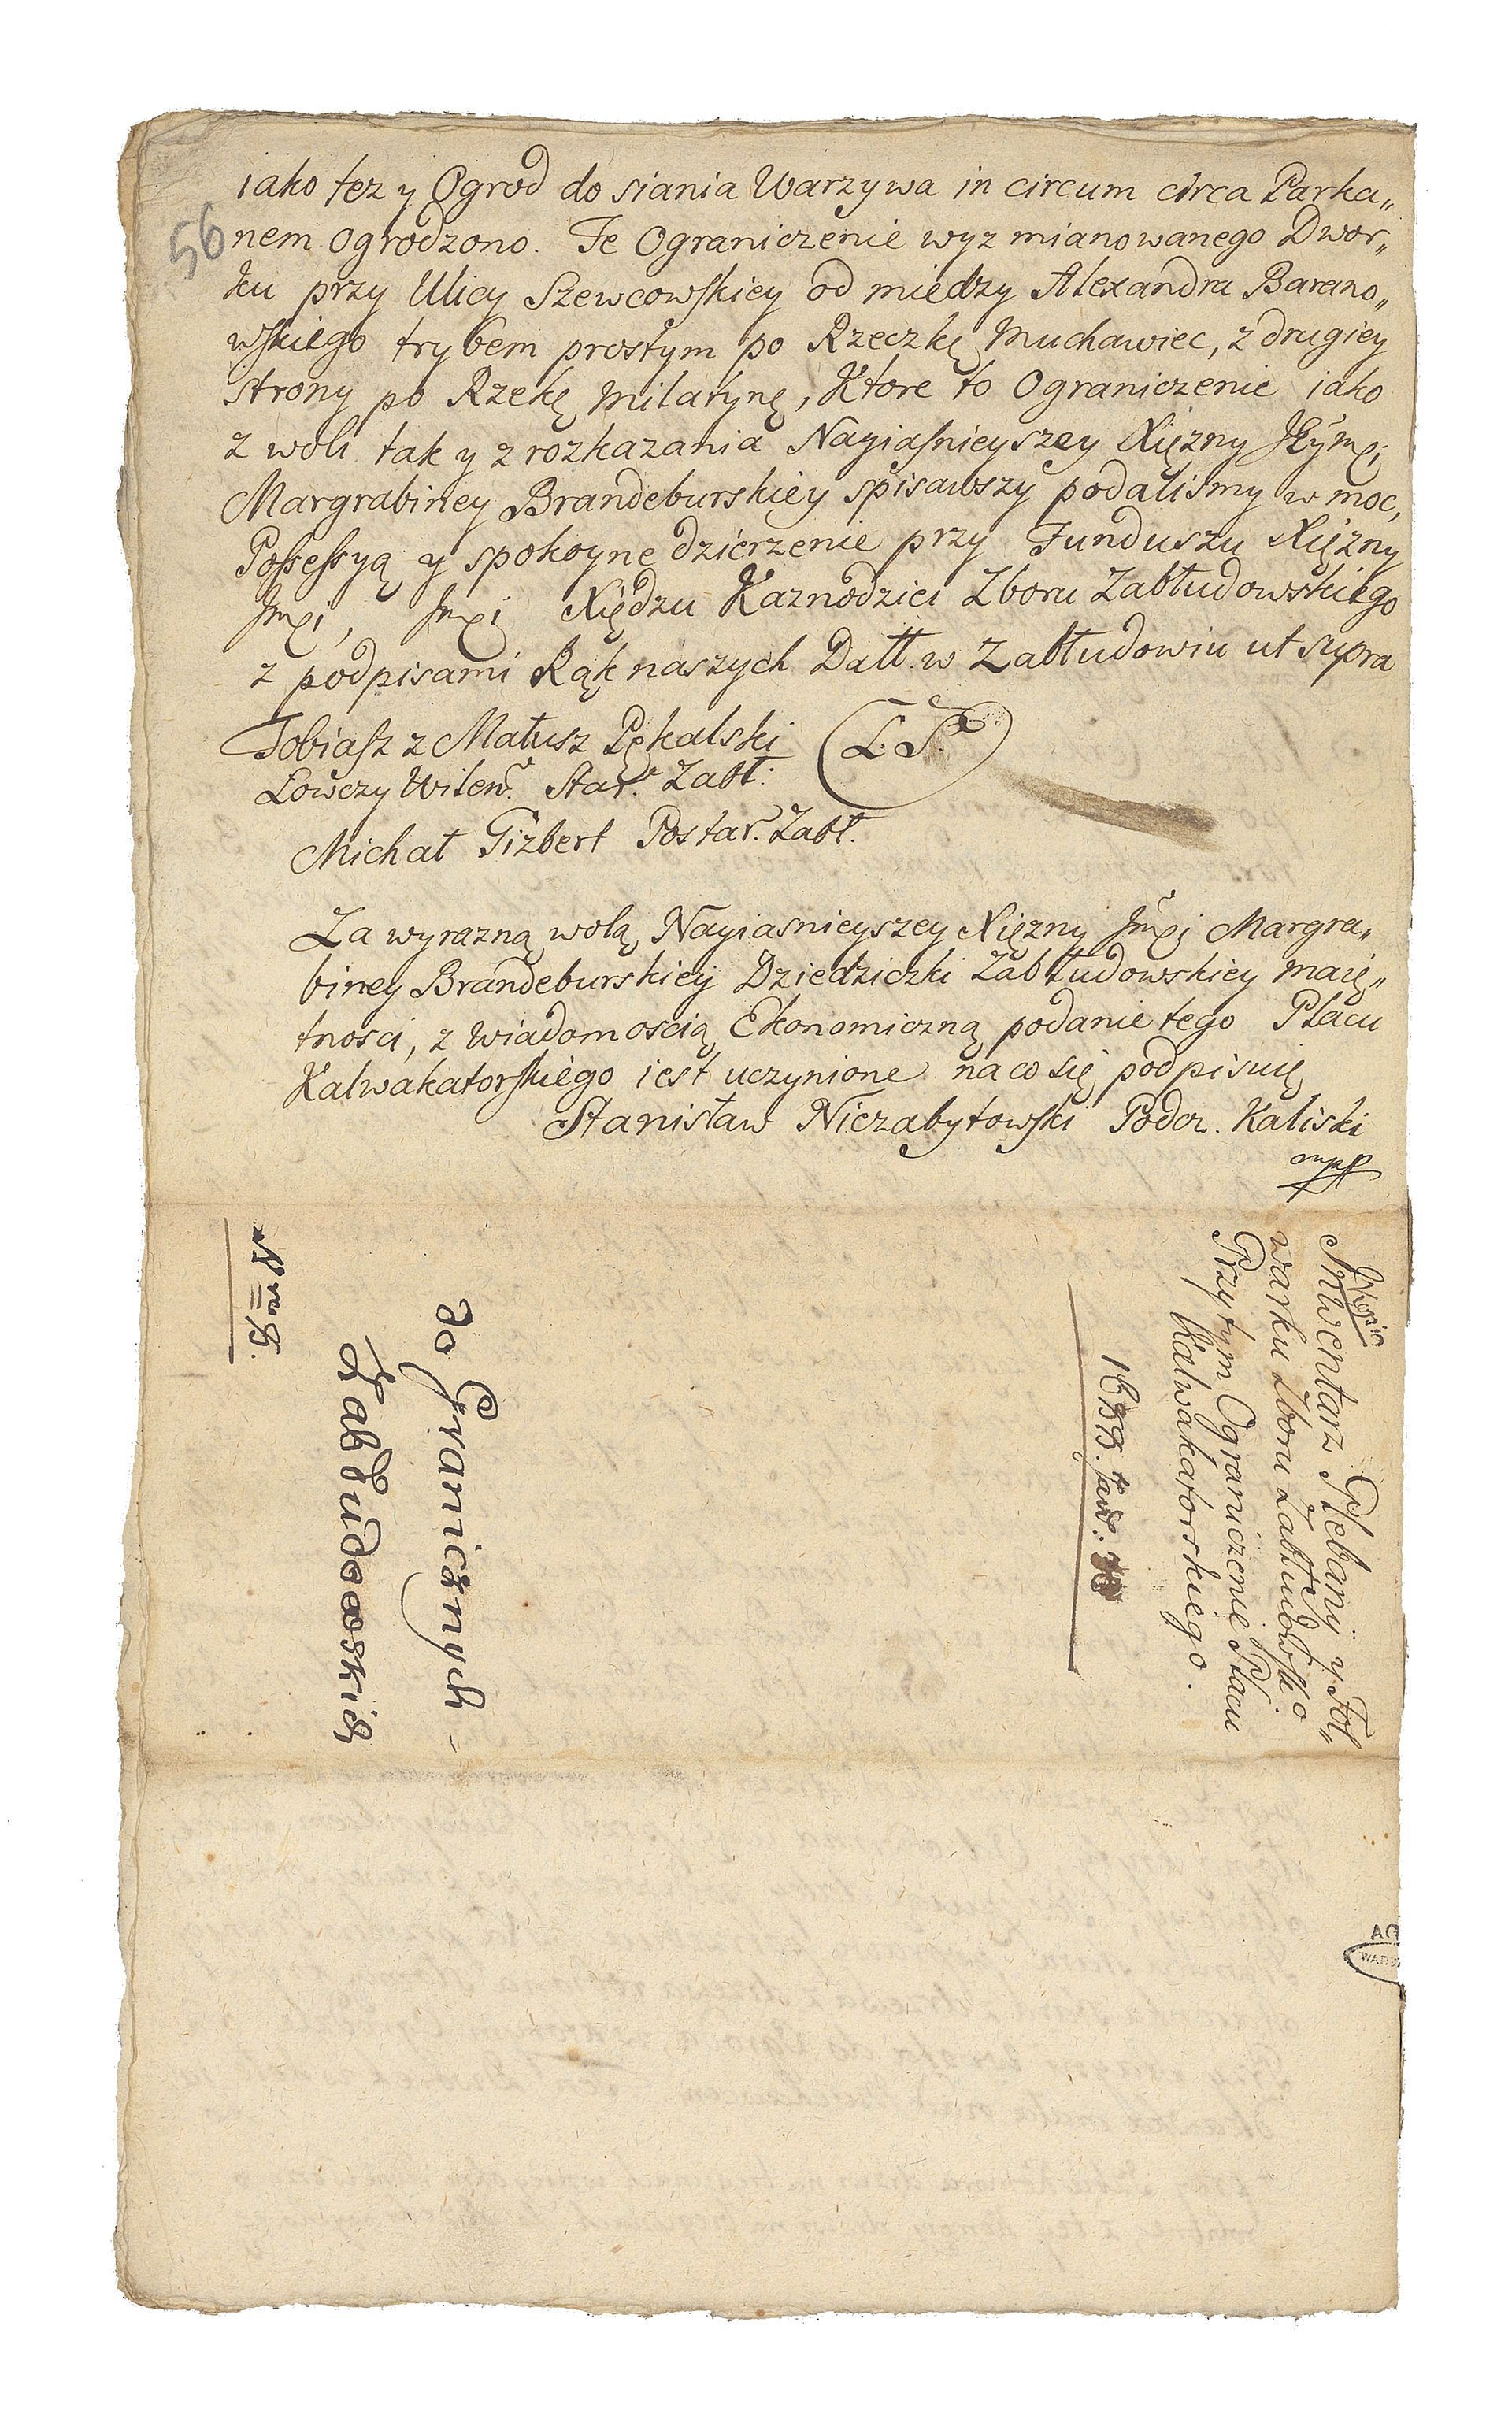 56
iako tez y Ogrod do siania Warzywa in circum circa Parka„
nem Ogrodzono. Te Ograniczenie wyz mianowanego Dwor„
ku przy Ulicy Szewcowskiey od miedzy Alexandra Barano„
wskiego trybem prostym po Rzeczkę Muchawiec, z drugiey
strony po Rzekę Milatynę, Ktore to Ograniczenie iako
z woli tak y z rozkazania Nayiasnieyszey Xięzny
Margrabiney Brandeburskiey spisawszy podalismy w moc,
Possessyą y spokoyne dzierzenie przy Funduszu Xięzny
Jmci, Jmci Xiędzu Kaznodziei Zboru Zabłudowskiego
z podpisami Rąk naszych Datt. w Zabłudowiu ut supra
Tobiasz z Matusz Pękalski (L.S.)
Łowczy Wilen. Star. Zabł:
Michał Gizbert Postar. Zabł.
Za wyrazną wolą Nayiasnieyszey Xięzny Jmci Margra„
biney Brandeburskiey Dziedziczki Zabłudowskiey maię„
tnosci, z wiadomoscią Ekonomiczną podanie tego Placu
Kalwakatorskiego iest uczynione na co się podpisuię
Stanisław Niezabytowski Podcz. Kaliski
mpp
Kopia
Inwentarz Plebanij y Fol„
warku Zboru Zabłudowsko
Przytym Ograniczenie Placu
Kalwakatorskiego.
do Granicznych
Zabłudowskich
Nro 5.
AG
WARSZ